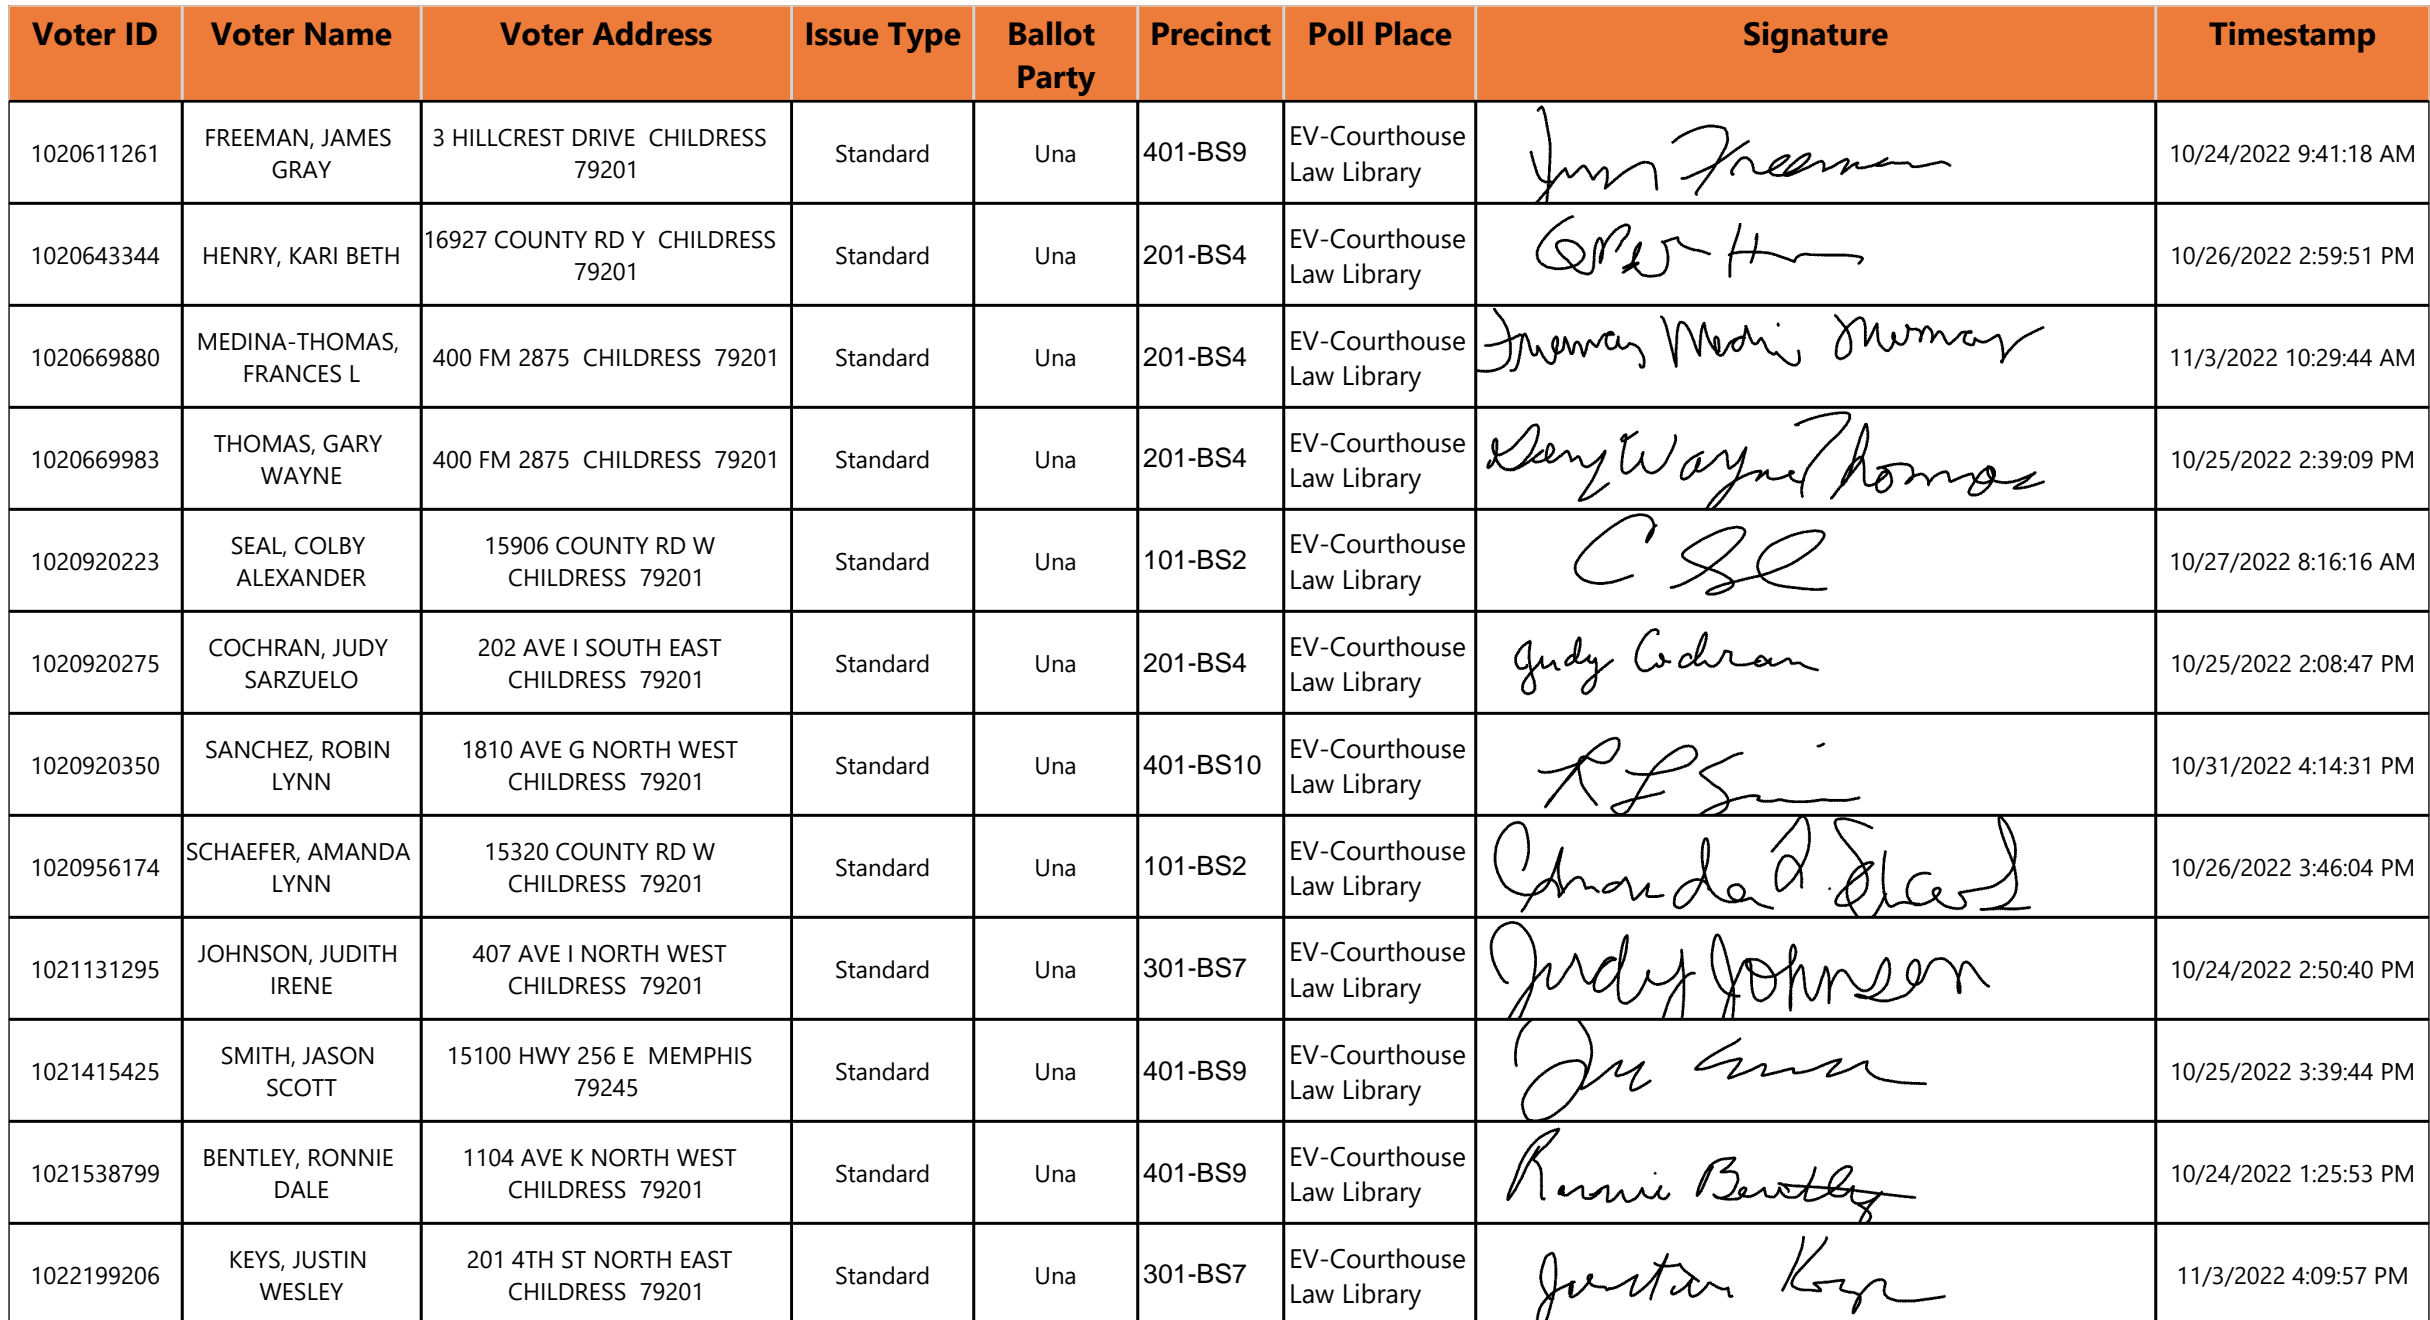 Voter ID Voter Name Voter Address Issue Type Ballot Party Precinct Poll Place Signature Timestamp
1020611261 FREEMAN, JAMES GRAY 3 HILLCREST DRIVE CHILDRESS 79201 Standard Una 401-BS9 EV-Courthouse Law Library Freeman 10/24/2022 9:41:18 AM
1020643344 HENRY, KARI BETH 16927 COUNTY RD Y CHILDRESS 79201 Standard Una 201-BS4 EV-Courthouse Law Library 10/26/2022 2:59:51 PM
1020669880 MEDINA-THOMAS, FRANCES L 400 FM 2875 CHILDRESS 79201 Standard Una 201-BS4 EV-Courthouse Law Library 11/3/2022 10:29:44 AM
1020669983 THOMAS, GARY WAYNE 400 FM 2875 CHILDRESS 79201 Standard Una 201-BS4 EV-Courthouse Law Library Gary Wayne Thomas 10/25/2022 2:39:09 PM
1020920223 SEAL, COLBY ALEXANDER 15906 COUNTY RD W CHILDRESS 79201 Standard Una 101-BS2 EV-Courthouse Law Library 10/27/2022 8:16:16 AM
1020920275 COCHRAN, JUDY SARZUELO 202 AVE I SOUTH EAST CHILDRESS 79201 Standard Una 201-BS4 EV-Courthouse Law Library Judy Cochran 10/25/2022 2:08:47 PM
1020920350 SANCHEZ, ROBIN LYNN 1810 AVE G NORTH WEST CHILDRESS 79201 Standard Una 401-BS10 EV-Courthouse Law Library 10/31/2022 4:14:31 PM
1020956174 SCHAEFER, AMANDA LYNN 15320 COUNTY RD W CHILDRESS 79201 Standard Una 101-BS2 EV-Courthouse Law Library Amanda 10/26/2022 3:46:04 PM
1021131295 JOHNSON, JUDITH IRENE 407 AVE I NORTH WEST CHILDRESS 79201 Standard Una 301-BS7 EV-Courthouse Law Library Judy Johnson 10/24/2022 2:50:40 PM
1021415425 SMITH, JASON SCOTT 15100 HWY 256 E MEMPHIS 79245 Standard Una 401-BS9 EV-Courthouse Law Library 10/25/2022 3:39:44 PM
1021538799 BENTLEY, RONNIE DALE 1104 AVE K NORTH WEST CHILDRESS 79201 Standard Una 401-BS9 EV-Courthouse Law Library Ronnie Bentley 10/24/2022 1:25:53 PM
1022199206 KEYS, JUSTIN WESLEY 201 4TH ST NORTH EAST CHILDRESS 79201 Standard Una 301-BS7 EV-Courthouse Law Library Justin 11/3/2022 4:09:57 PM